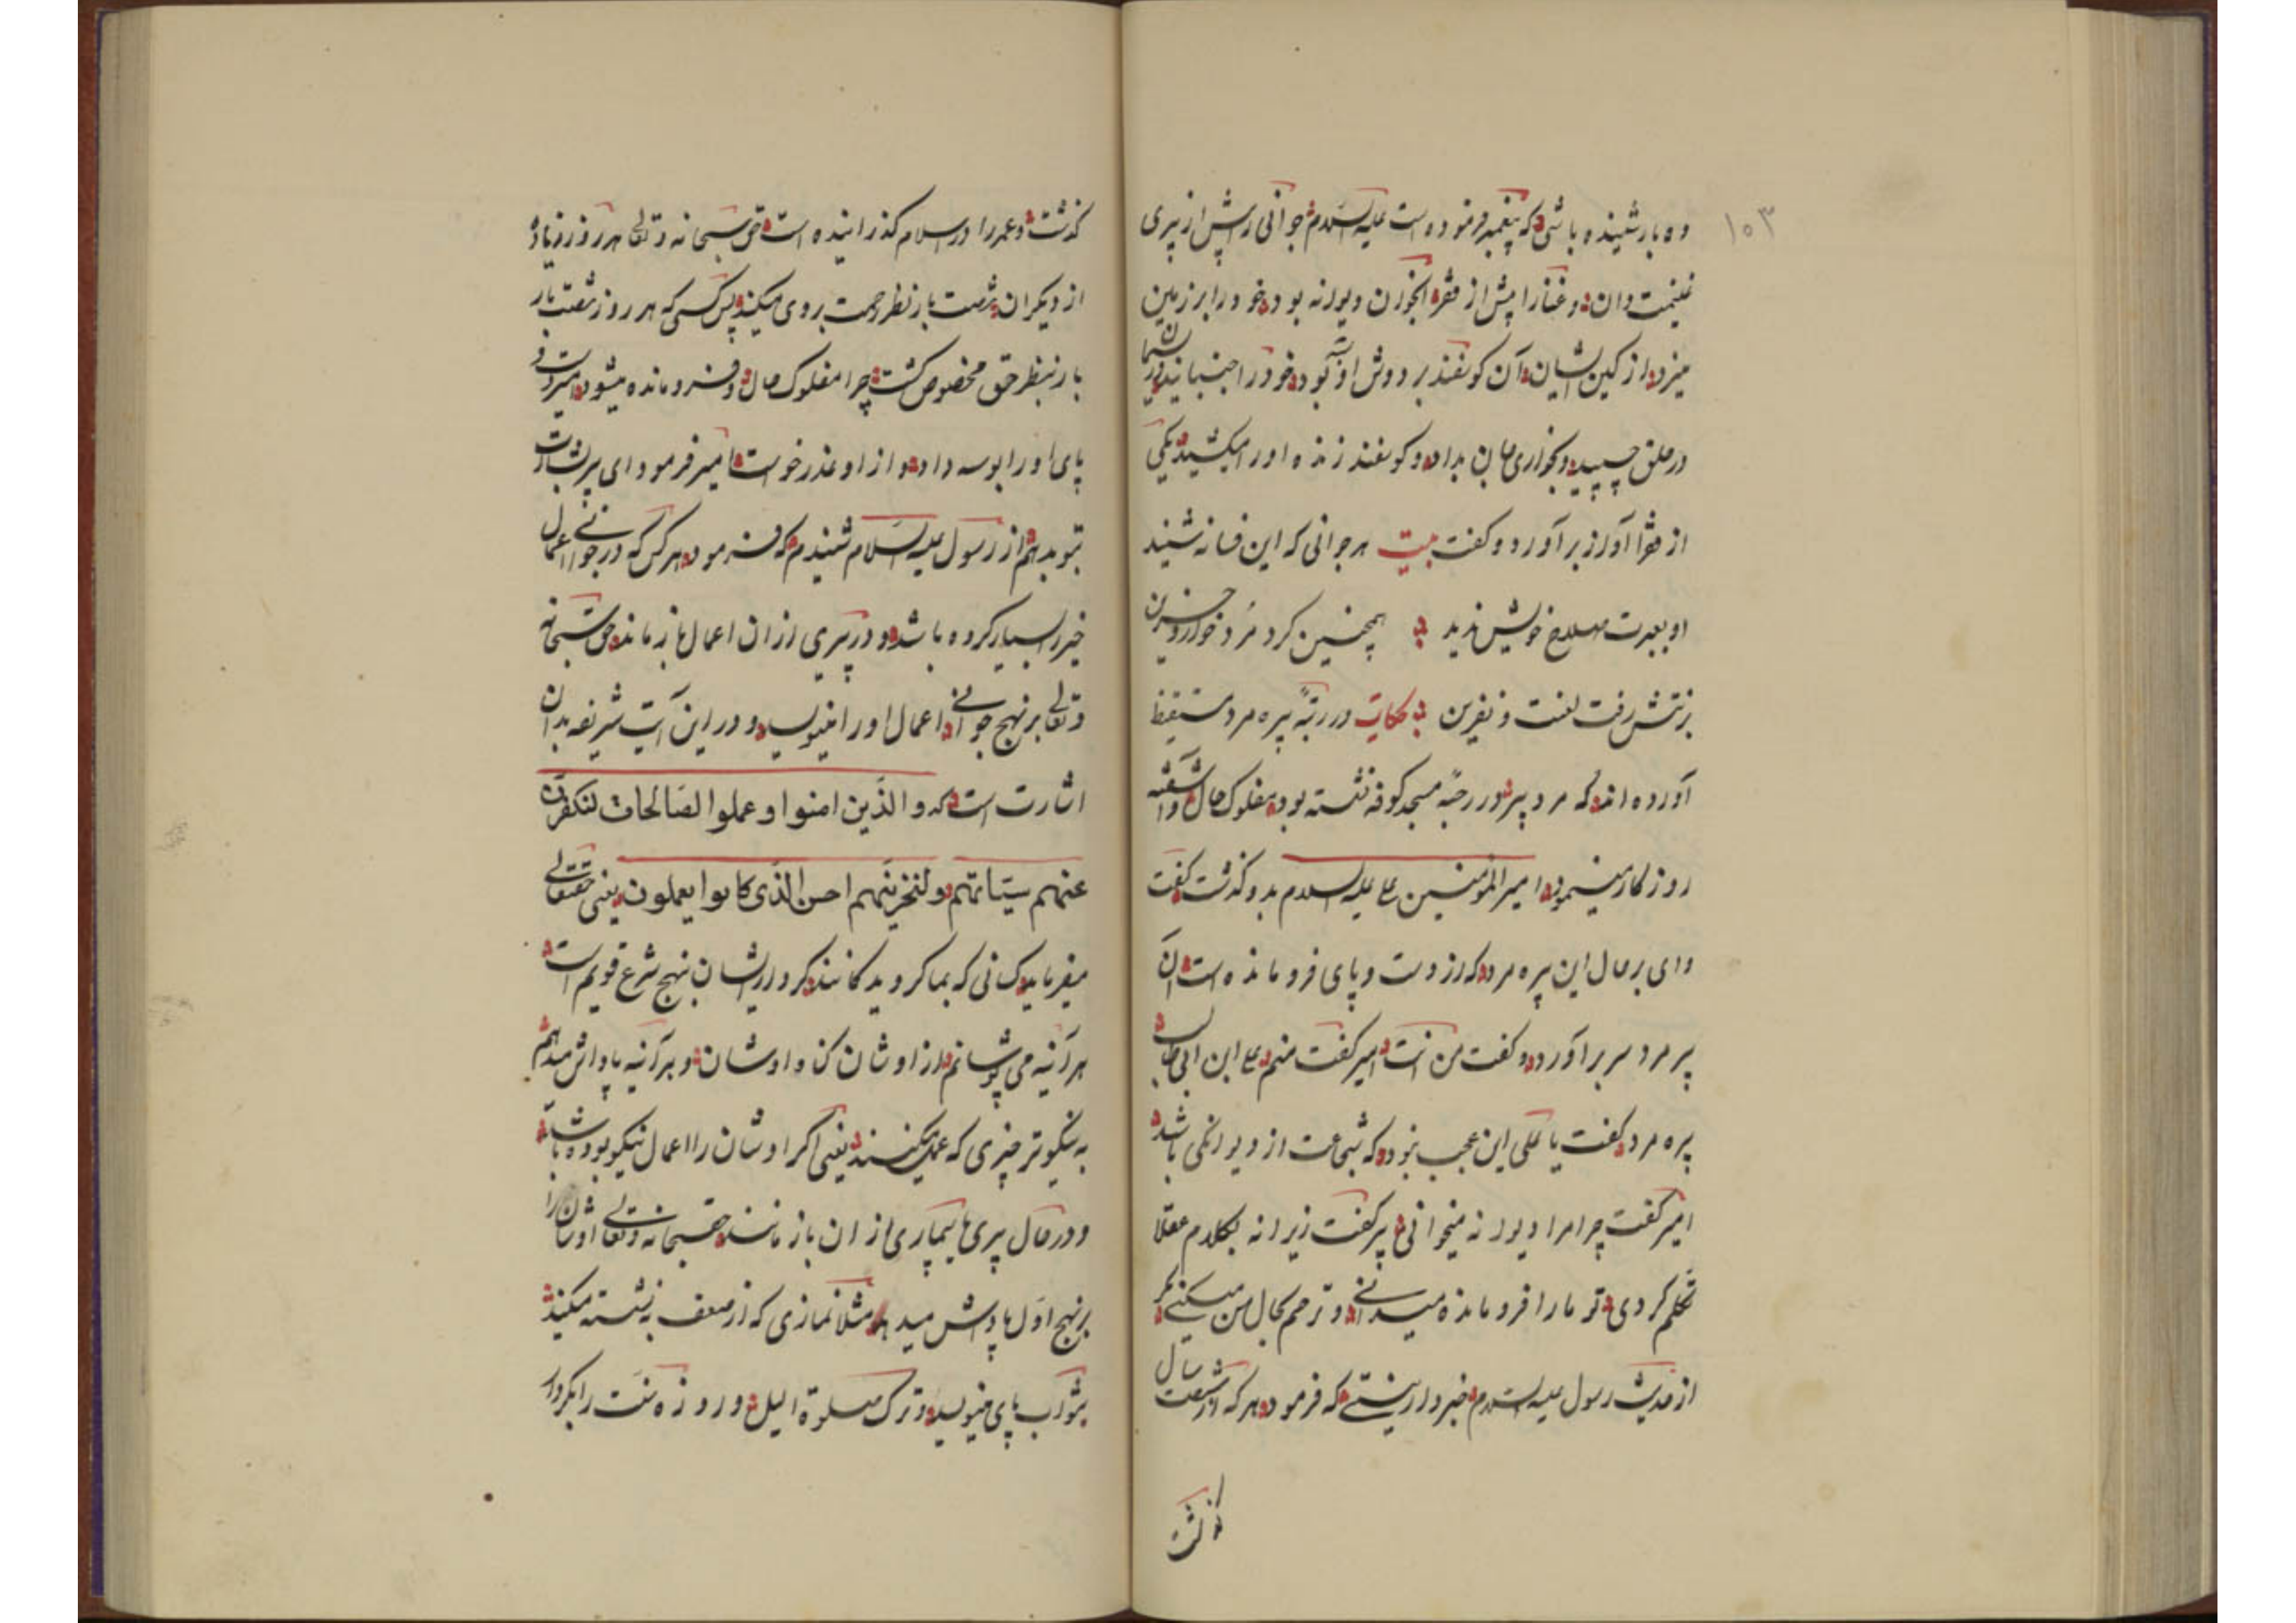 ۱۰۳
ده بار شنیده باشی که پیغمبر فرموده است علیه السلام جوانی را پیش از پیری
غنیمت دان و غنا را پیش از فقر آنجوان دیوانه بود خود را بر زمین
میزد از کین ایشان آن کوسفند بر دوش او بود خود را جنبانید ریسمان
در حلق چسپید و بخواری جان بداد و کوسفند زنده او را میکشید یکی
از فقرا آواز برآورد و کفت بیت هر جوانی که این فسانه شنید
او بعبرت صلاح خویش ندید همچنین کرد مرد خوار و حزین
برتنش رفت لعنت و نفرین حکایت در رتبهٔ پیره مرد مستیقظ
آورده اند که مرد پیر در رحبهٔ مسجد کوفه نشسته بود مفلوک حال و آشفته
روزکار مینمود امیرالمؤمنین علی علیه السلام بدو کذشت کفت
وای بر حال این پیره مرد که از دست و پای فرو مانده است آن
پیر مرد سر برآورد و کفت من انت امیر کفت منم علی ابن ابی طالب
پیره مرد کفت یا علی این عجب نبود که شجاعت از دیوانکی باشد
امیر کفت چرا مرا دیوانه میخوانی پیر کفت زیرا نه بکلام عقلا
تکلم کردی تو ما را فرو مانده میدانی و ترحم بحال من میکنی مکر
از حدیث رسول علیه السلام خبردار نیستی که فرمود هر که از شصت سال
کذشت
کذشت و عمر را در اسلام کذرانیده است حق سبحانه و تعالی هر روز زیاده
از دیکران شصت بار نظر رحمت بر وی میکند پس کسی که هر روز شصت بار
بار بنظر حق مخصوص کشت چرا مفلوک حال و فرومانده میشود امیر دست و
پای او را بوسه داد و از او عذر خواست امیر فرمود ای پیر بشارت
بتو بدهم از رسول علیه السلام شنیدم که فرمود هر کس که در جوانی اعمال
خیر را بسیار کرده باشد و در پیری از آن اعمال باز ماند حق سبحانه
وتعالی بر نهج جوانی اعمال او را مینویسد و در این آیت شریفه بدان
اشارت است که والذین امنوا وعملوا الصالحات لنکفرن
عنهم سیئاتهم ولنجزینهم احسن الذی کانوا یعملون یعنی حقتعالی
میفرماید کسانی که بما کرویدکانند کردار ایشان بنهج شرع قویم است
هر آینه می پوشانم از اوشان کناه اوشان و هر آینه پاداش میدهم
به نیکوتر چیزی که عمل میکنند یعنی اکر اوشان را اعمال نیکو بوده باشد
و در حال پیری یا بیماری از آن باز مانند حق سبحانه وتعالی اوشان را
بر نهج اول پاداش میدهد مثلا نمازی که از ضعف نشسته میکند
بثواب بپای مینویسد و ترک صلوة اللیل و روزه سنت را بکردار